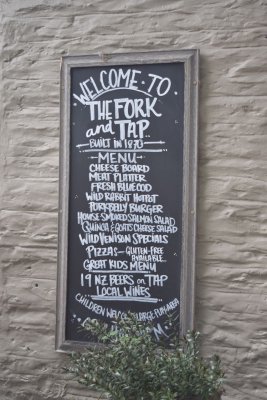 WELCOME · TO
THE FORK
and TAP
BUILT IN 1870
MENU
CHEESE BOARD
MEAT PLATTER
FRESH BLUE COD
WILD RABBIT HOTPOT
PORKBELLY BURGER
HOUSE SMOKED SALMON SALAD
QUINOA & GOATS CHEESE SALAD
WILD VENISON SPECIALS
PIZZAS - GLUTEN-FREE
AVAILABLE...
GREAT KIDS MENU
19 NZ BEERS ON TAP
LOCAL WINES
CHILDREN WELCOME LARGE PLAY AREA